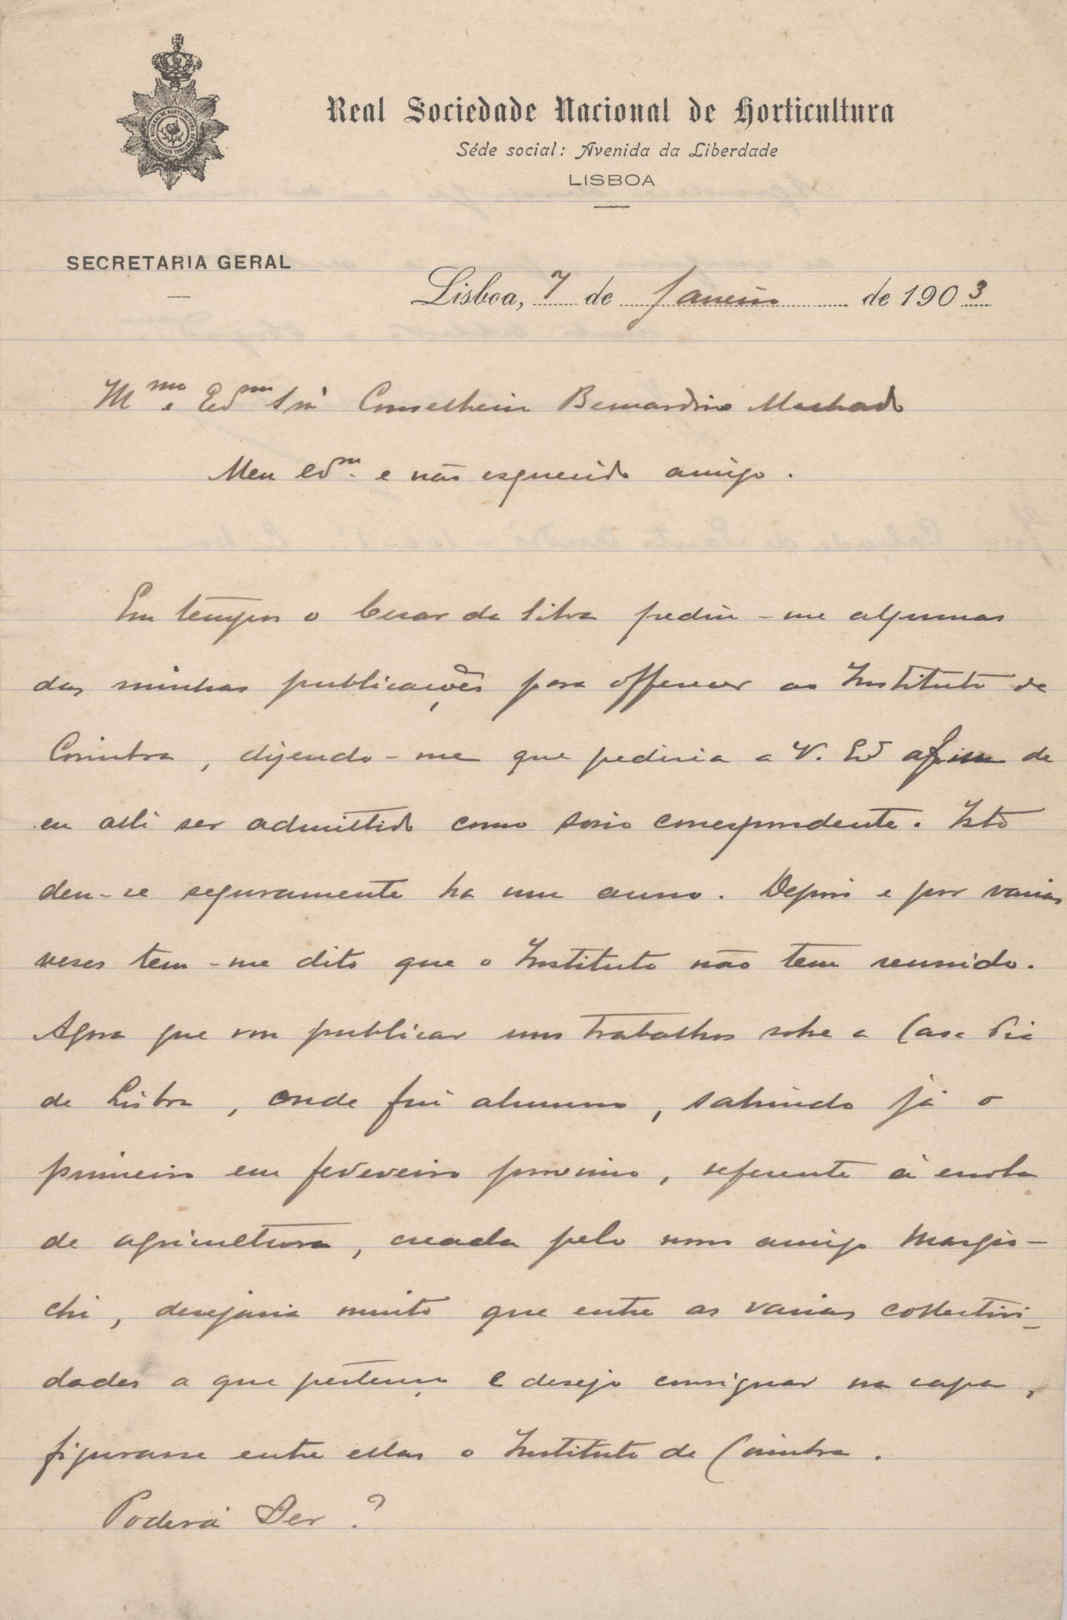 Real Sociedade Nacional de Horticultura
Séde social: Avenida da Liberdade
LISBOA
SECRETARIA GERAL
Lisboa, 7 de Janeiro de 1903
Mmo e Exmo Snr Conselheiro Bernardino Machado
Meu Exmo. e não esquecido amigo.
Em tempos o Cesar da Silva pediu-me algumas
das minhas publicações para offerecer ao Instituto de
Coimbra, dizendo-me que pediria a V. Exª afim de
eu alli ser admittido como socio correspondente. Isto
deu-se seguramente ha um anno. Depois e por varias
vezes tem-me dito que o Instituto não tem reunido.
Agora que vou publicar uns trabalhos sobre a Casa Pia
de Lisboa, onde fui alumno, sahindo já o
primeiro em fevereiro proximo, referente á escola
de agricultura, creada pelo nosso amigo Margio-
chi, desejaria muito que entre as varias collectivi-
dades a que pertenço e desejo consignar na capa,
figurasse entre ellas o Instituto de Coimbra.
Poderá Ser?